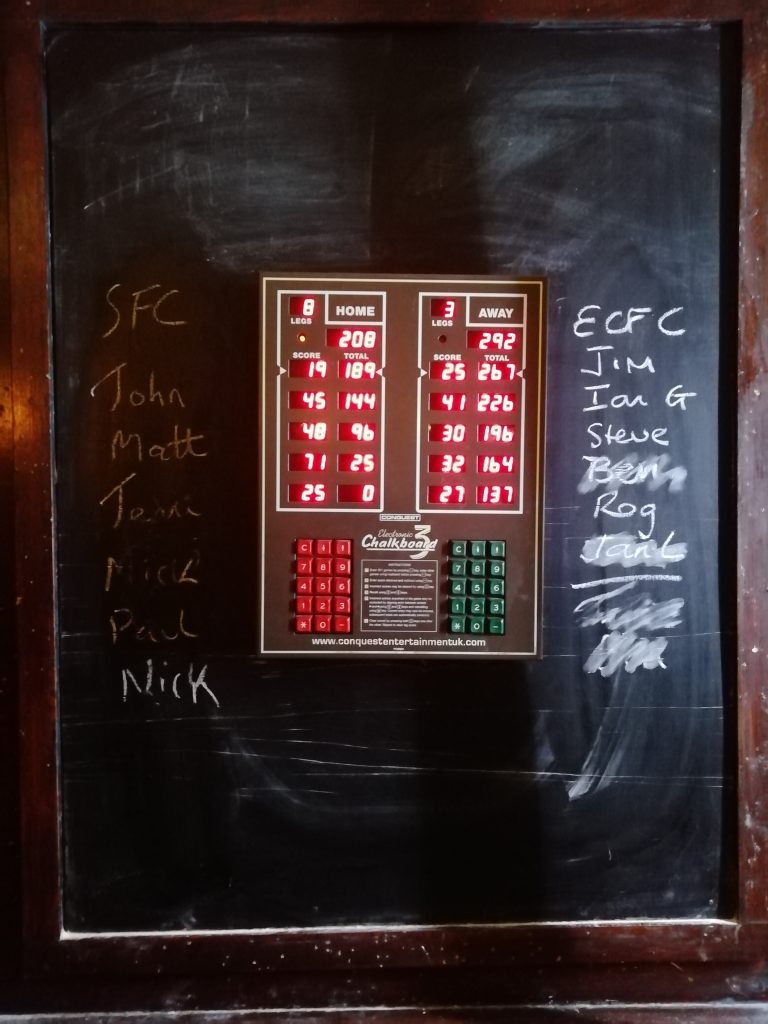 SFC
John
Matt
Mick
Paul
Nick
8 HOME
LEGS
208
SCORE TOTAL
19 189
45 144
48 96
71 25
25 0
3 AWAY
LEGS
292
SCORE TOTAL
25 267
41 226
30 196
32 164
27 137
CONQUEST
Electronic
Chalkboard 3
INSTRUCTIONS
C
7 8 9
4 5 6
1 2 3
* 0 -
C
7 8 9
4 5 6
1 2 3
* 0 -
www.conquestentertainmentuk.com
ECFC
Jim
Ian G
Steve
Ben
Rog
Ian L